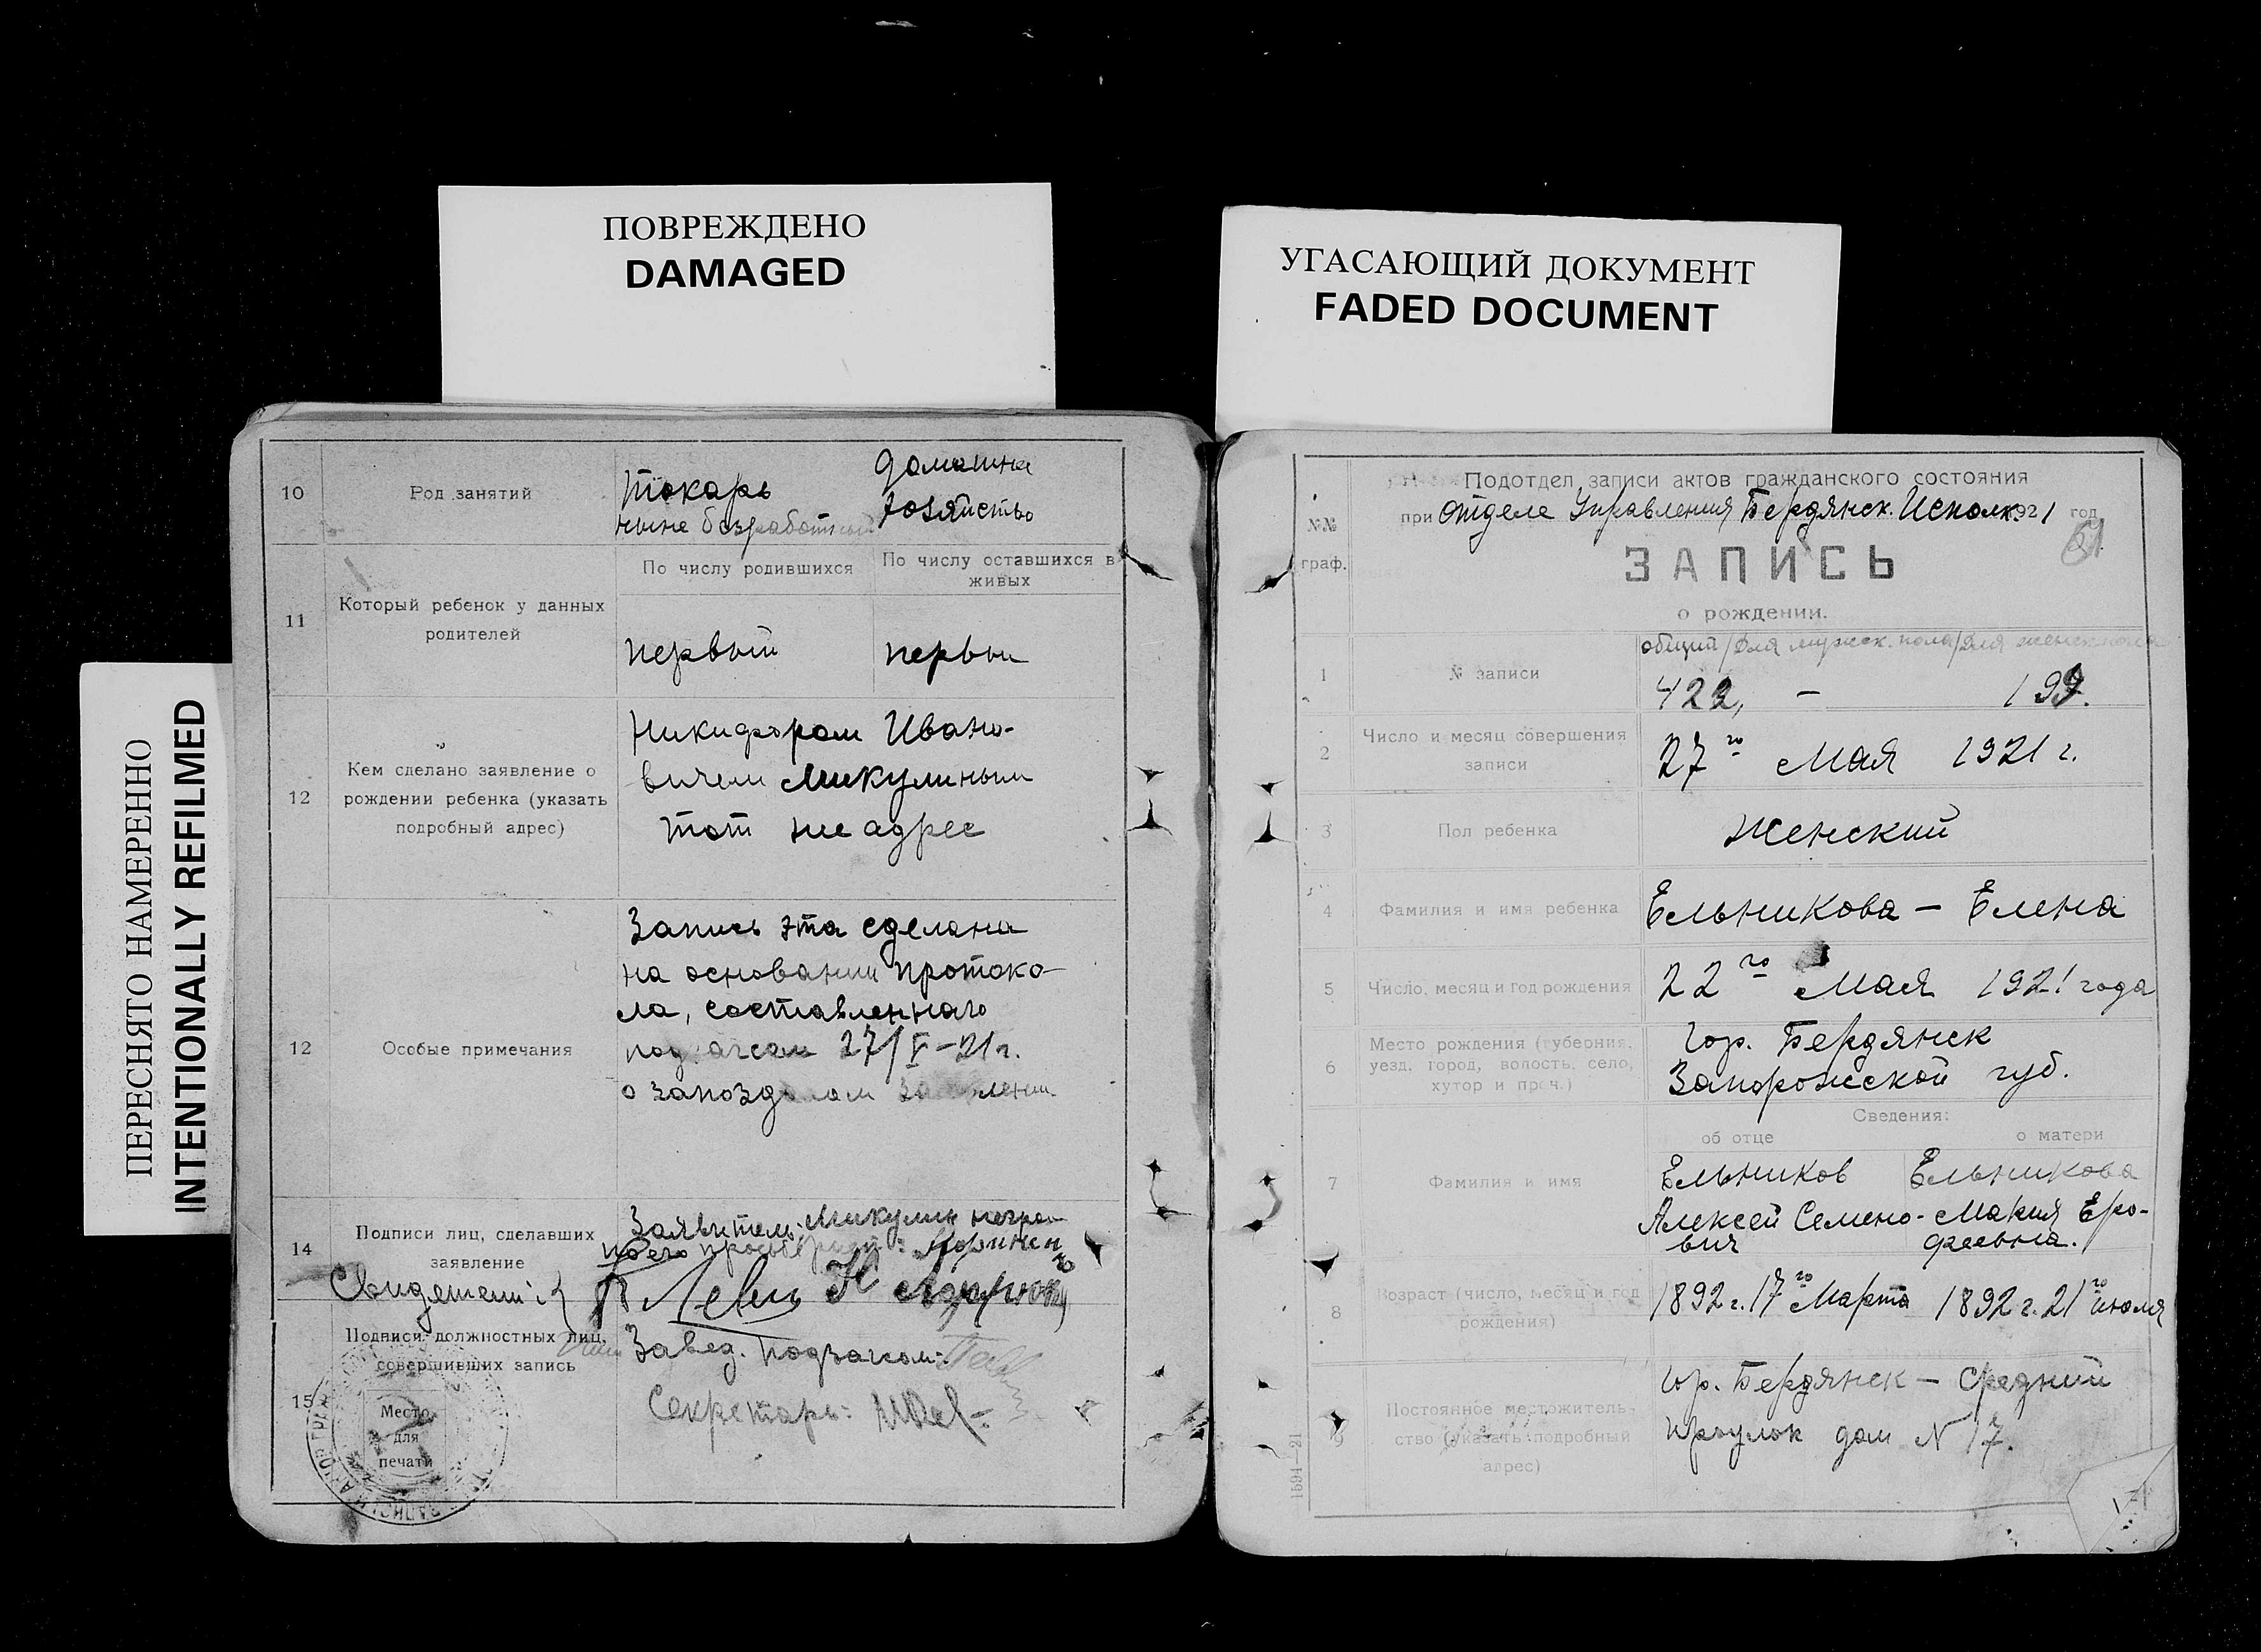 ПОВРЕЖДЕНО
DAMAGED
УГАСАЮЩИЙ ДОКУМЕНТ
FADED DOCUMENT
ПЕРЕСНЯТО НАМЕРЕННО
INTENTIONALLY REFILMED
10 Род занятий
Токарь
ныне безработный
домашнее
хозяйство
11 Который ребенок у данных
родителей
По числу родившихся
По числу оставшихся в
живых
первый
первый
12 Кем сделано заявление о
рождении ребенка (указать
подробный адрес)
Никифором Ивано-
вичем Микулиным
тот же адрес
12 Особые примечания
Запись эта сделана
на основании протоко-
ла, составленного
27/V-21 г.
о запоздалом заявлении
14 Подписи лиц, сделавших
заявление
Заявитель: Микулин негра-
Свидетели:
15 Подписи должностных лиц,
совершивших запись
Завед. Подзагсом:
Секретарь:
Место
для
печати
№№
граф.
Подотдел записи актов гражданского состояния
при Отделе Управления Бердянск. Исполк. 1921 год
61
ЗАПИСЬ
о рождении.
1 № записи
общий / для мужск. пола / для женск. пола
422, — 199.
2 Число и месяц совершения
записи
27го Мая 1921 г.
3 Пол ребенка
Женский
4 Фамилия и имя ребенка
Ельникова — Елена
5 Число, месяц и год рождения
22го Мая 1921 года
6 Место рождения (губерния,
уезд, город, волость, село,
хутор и проч.)
Гор. Бердянск
Запорожской губ.
Сведения:
об отце
о матери
7 Фамилия и имя
Ельников
Алексей Семено-
вич
Ельникова
Мария Еро-
феевна.
8 Возраст (число, месяц и год
рождения)
1892 г. 17го Марта
1892 г. 21го июля
9 Постоянное местожитель-
ство (указать подробный
адрес)
Гор. Бердянск — Средний
проулок дом № 17.
1594—21